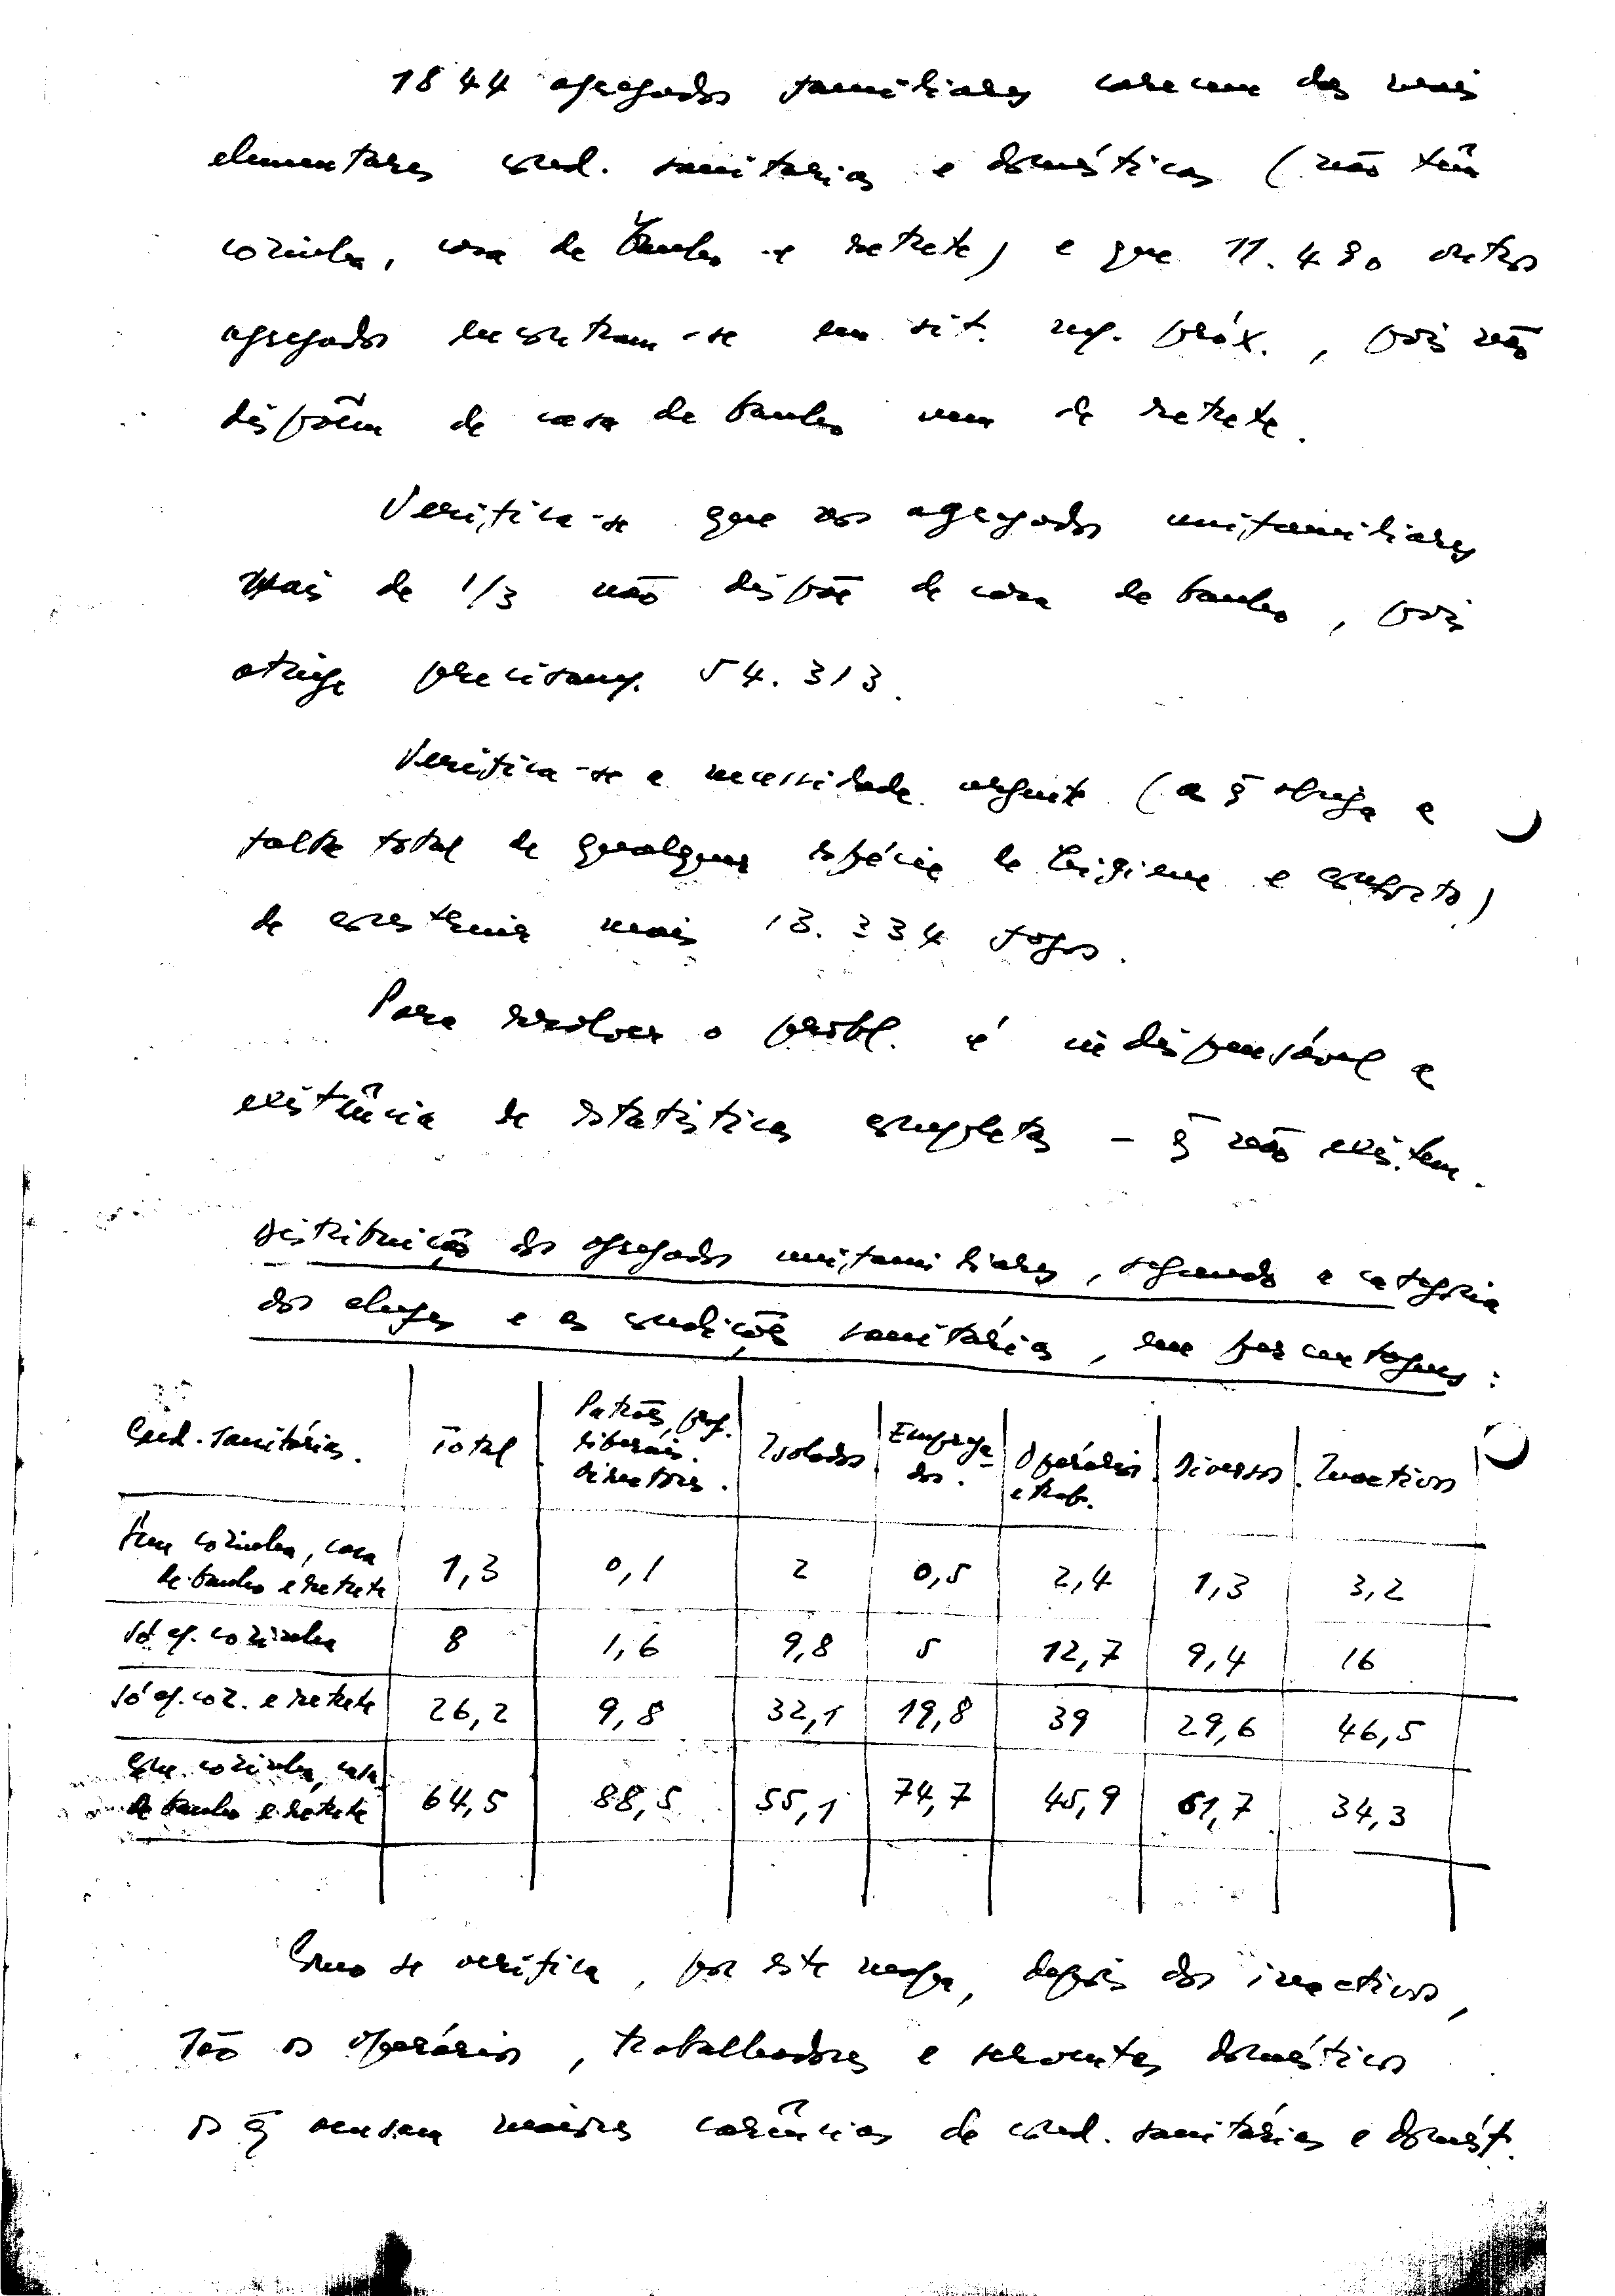 1844 agregados familiares carecem das mais
elementares cond. sanitarias e domésticas (não têm
cozinha, casa de banho e retrete) e que 11.480 outros
agregados encontram-se em sit. mg. próx., pois não
dispõem de casa de banho nem de retrete.
Verifica-se que os agregados unifamiliares
mais de 1/3 não dispõe de casa de banho, pois
atinge precisamg. 54.313.
Verifica-se a necessidade urgente (a q̃ obriga a
falta total de qualquer espécie de higiene e conforto)
de construir mais 13.334 fogos.
Para resolver o probl. é indispensável a
existência de estatísticas completas - q̃ não existem.
Distribuição dos agregados unifamiliares, segundo a categoria
dos chefes e as condições sanitárias, em percentagens:
Cond. Sanitárias. Total Patrões, prof. liberais. directores. Isolados Emprega-dos. Operários e trab. Diversos Inactivos
Sem cozinha, casa
de banho e retrete 1,3 0,1 2 0,5 2,4 1,3 3,2
Só c/. cozinha 8 1,6 9,8 5 12,7 9,4 16
Só c/. coz. e retrete 26,2 9,8 32,1 19,8 39 29,6 46,5
Com cozinha, casa
de banho e retrete 64,5 88,5 55,1 74,7 45,9 61,7 34,3
Como se verifica, por este mapa, depois dos inactivos,
são os operários, trabalhadores e serventes domésticos
os q̃ acusam maiores carências de cond. sanitárias e domést.